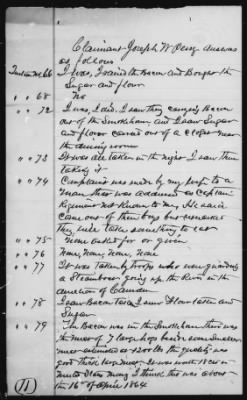 Claimant Joseph W Deuy answers
as follows
Question No 66 I was, I owned the Bacon and Bought the
Sugar and flour
" " 68 No
" " 72 I was, I did. I saw they carrying Bacon
out of the Smokehouse, and I saw Sugar
and flour carried out of a closet near
the dining room
" " 73 It was all taken in the night I saw them
taking it
" " 74 Complaint was made by my wife to a
man that was addressed as Captain
Regiment not known to me. He said
Come out of there boys but remarked
they will take something to eat
" " 75 None asked for or given
" " 76 None, None, None, None
" " 77 It was taken by troops who were guarding
a Steamboat going up the River in the
direction of Camden
" " 78 I saw Bacon taken I saw Flour taken and
Sugar
" " 79 The Bacon was in the Smokehouse there was
the meat of 7 large hogs besides some smaller
meat amounted to 1200 lbs the quality was
good thick hog meat. It was worth 18c in
United States money I think this was about
the 16th of April 1864
(11)